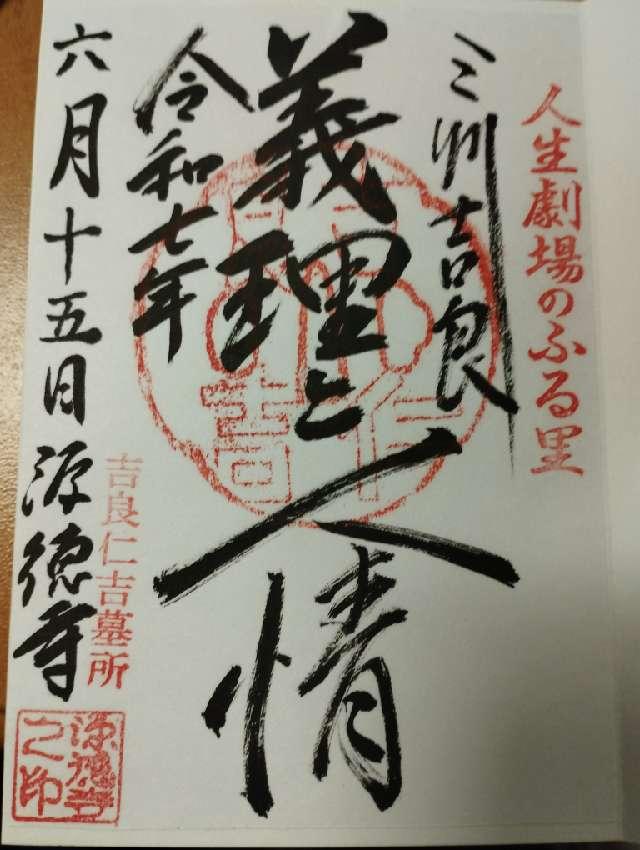 人生劇場のふる里
三州吉良
義理と人情
令和七年
六月十五日 源徳寺
吉良仁吉墓所
源徳寺
之印